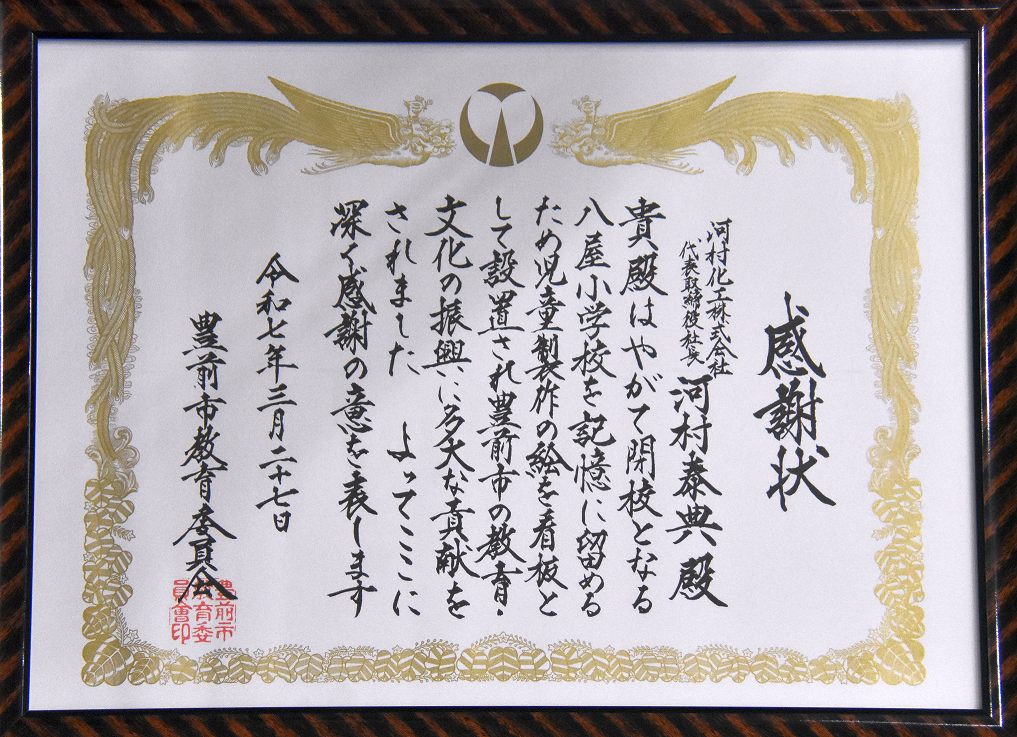 感謝状
河村化工株式会社
代表取締役社長
河村泰典殿
貴殿はやがて閉校となる
八屋小学校を記憶に留める
ため児童製作の絵を看板と
して設置され豊前市の教育・
文化の振興に多大な貢献を
されました よってここに
深く感謝の意を表します
令和七年三月二十七日
豊前市教育委員会
豊前市
教育委
員會印